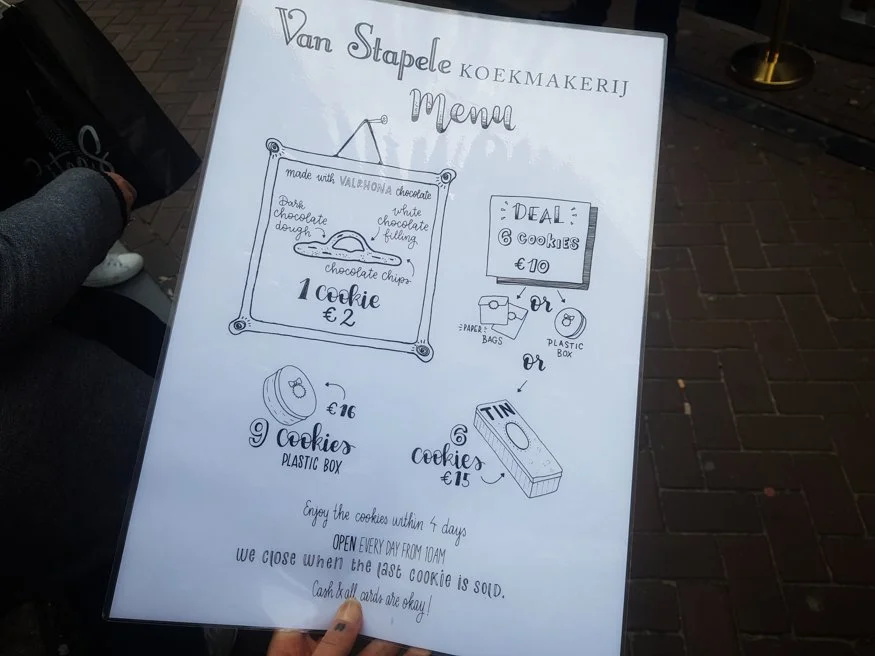 Van Stapele KOEKMAKERIJ
Menu
made with VALRHONA chocolate
Dark
chocolate
dough
white
chocolate
filling
chocolate chips
1 cookie
€2
DEAL
6 cookies
€10
or
PAPER
BAGS
PLASTIC
BOX
or
€16
9 cookies
PLASTIC BOX
TIN
6
cookies
€15
Enjoy the cookies within 4 days
OPEN EVERY DAY FROM 10AM
we close when the last cookie is sold.
Cash & all cards are okay!